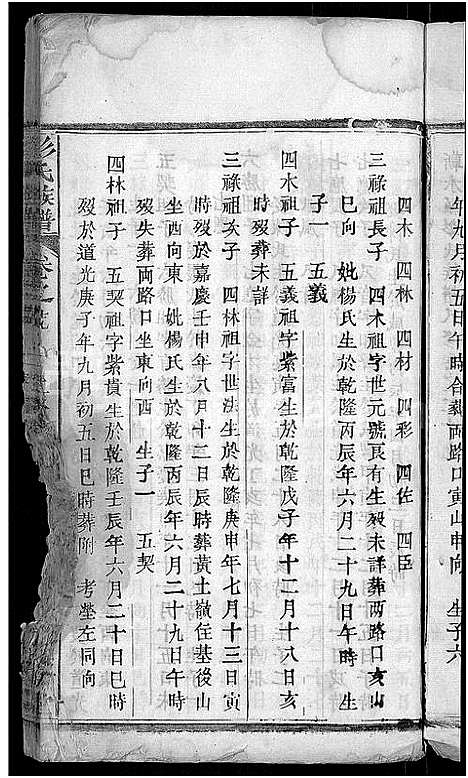 年九月初五日午時合葬两路口寅山申向 生子六
四木 四林 四材 四彩 四佐 四臣
三祿祖長子 四木祖字世元號良有生殁未詳葬两路口亥山
巳向 妣楊氏生於乾隆丙辰年六月二十九日午時 生
子一 五義
四木祖子 五義祖字紫富生於乾隆戊子年十二月十八日亥
時殁葬未詳
三祿祖次子 四林祖字世法生於乾隆庚申年七月十三日寅
時殁於嘉慶壬申年八月十三日辰時葬黃土嶺住基後山
坐西向東 妣楊氏生於乾隆丙辰年六月二十九日午時
殁失葬两路口坐東向西 生子一 五契
四林祖子 五契祖字紫貴生於乾隆壬辰年六月二十日巳時
殁於道光庚子年九月初五日巳時葬附 考塋左同向
彭氏族譜